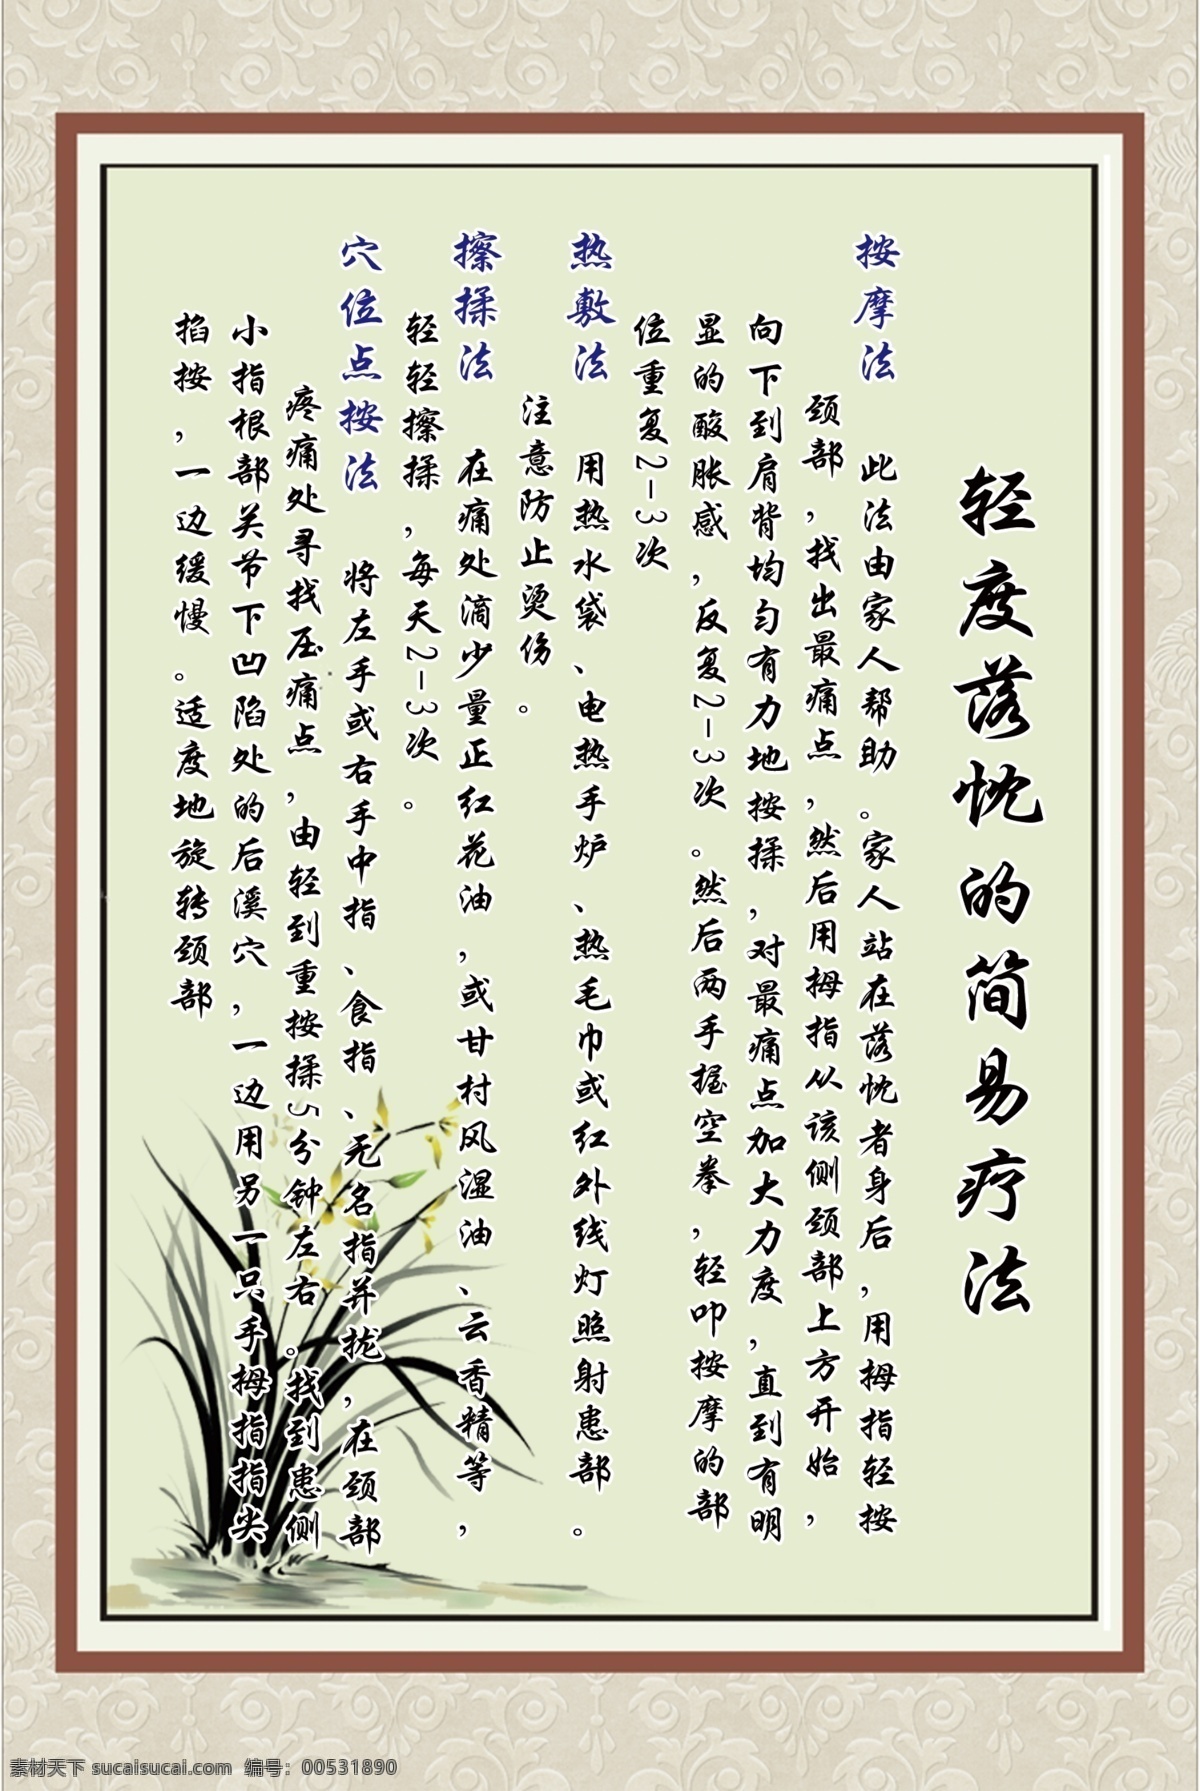 轻度落忱的简易疗法
按摩法 此法由家人帮助。家人站在落忱者身后，用拇指轻按
颈部，找出最痛点，然后用拇指从该侧颈部上方开始，
向下到肩背均匀有力地按揉，对最痛点加大力度，直到有明
显的酸胀感，反复2-3次。然后两手握空拳，轻叩按摩的部
位重复2-3次
热敷法 用热水袋、电热手炉、热毛巾或红外线灯照射患部。
注意防止烫伤。
擦揉法 在痛处滴少量正红花油，或甘村风湿油、云香精等，
轻轻擦揉，每天2-3次。
穴位点按法 将左手或右手中指、食指、无名指并拢，在颈部
疼痛处寻找压痛点，由轻到重按揉5分钟左右。找到患侧
小指根部关节下凹陷处的后溪穴，一边用另一只手拇指指尖
掐按，一边缓慢。适度地旋转颈部
素材天下 sucaisucai.com 编号：00531890